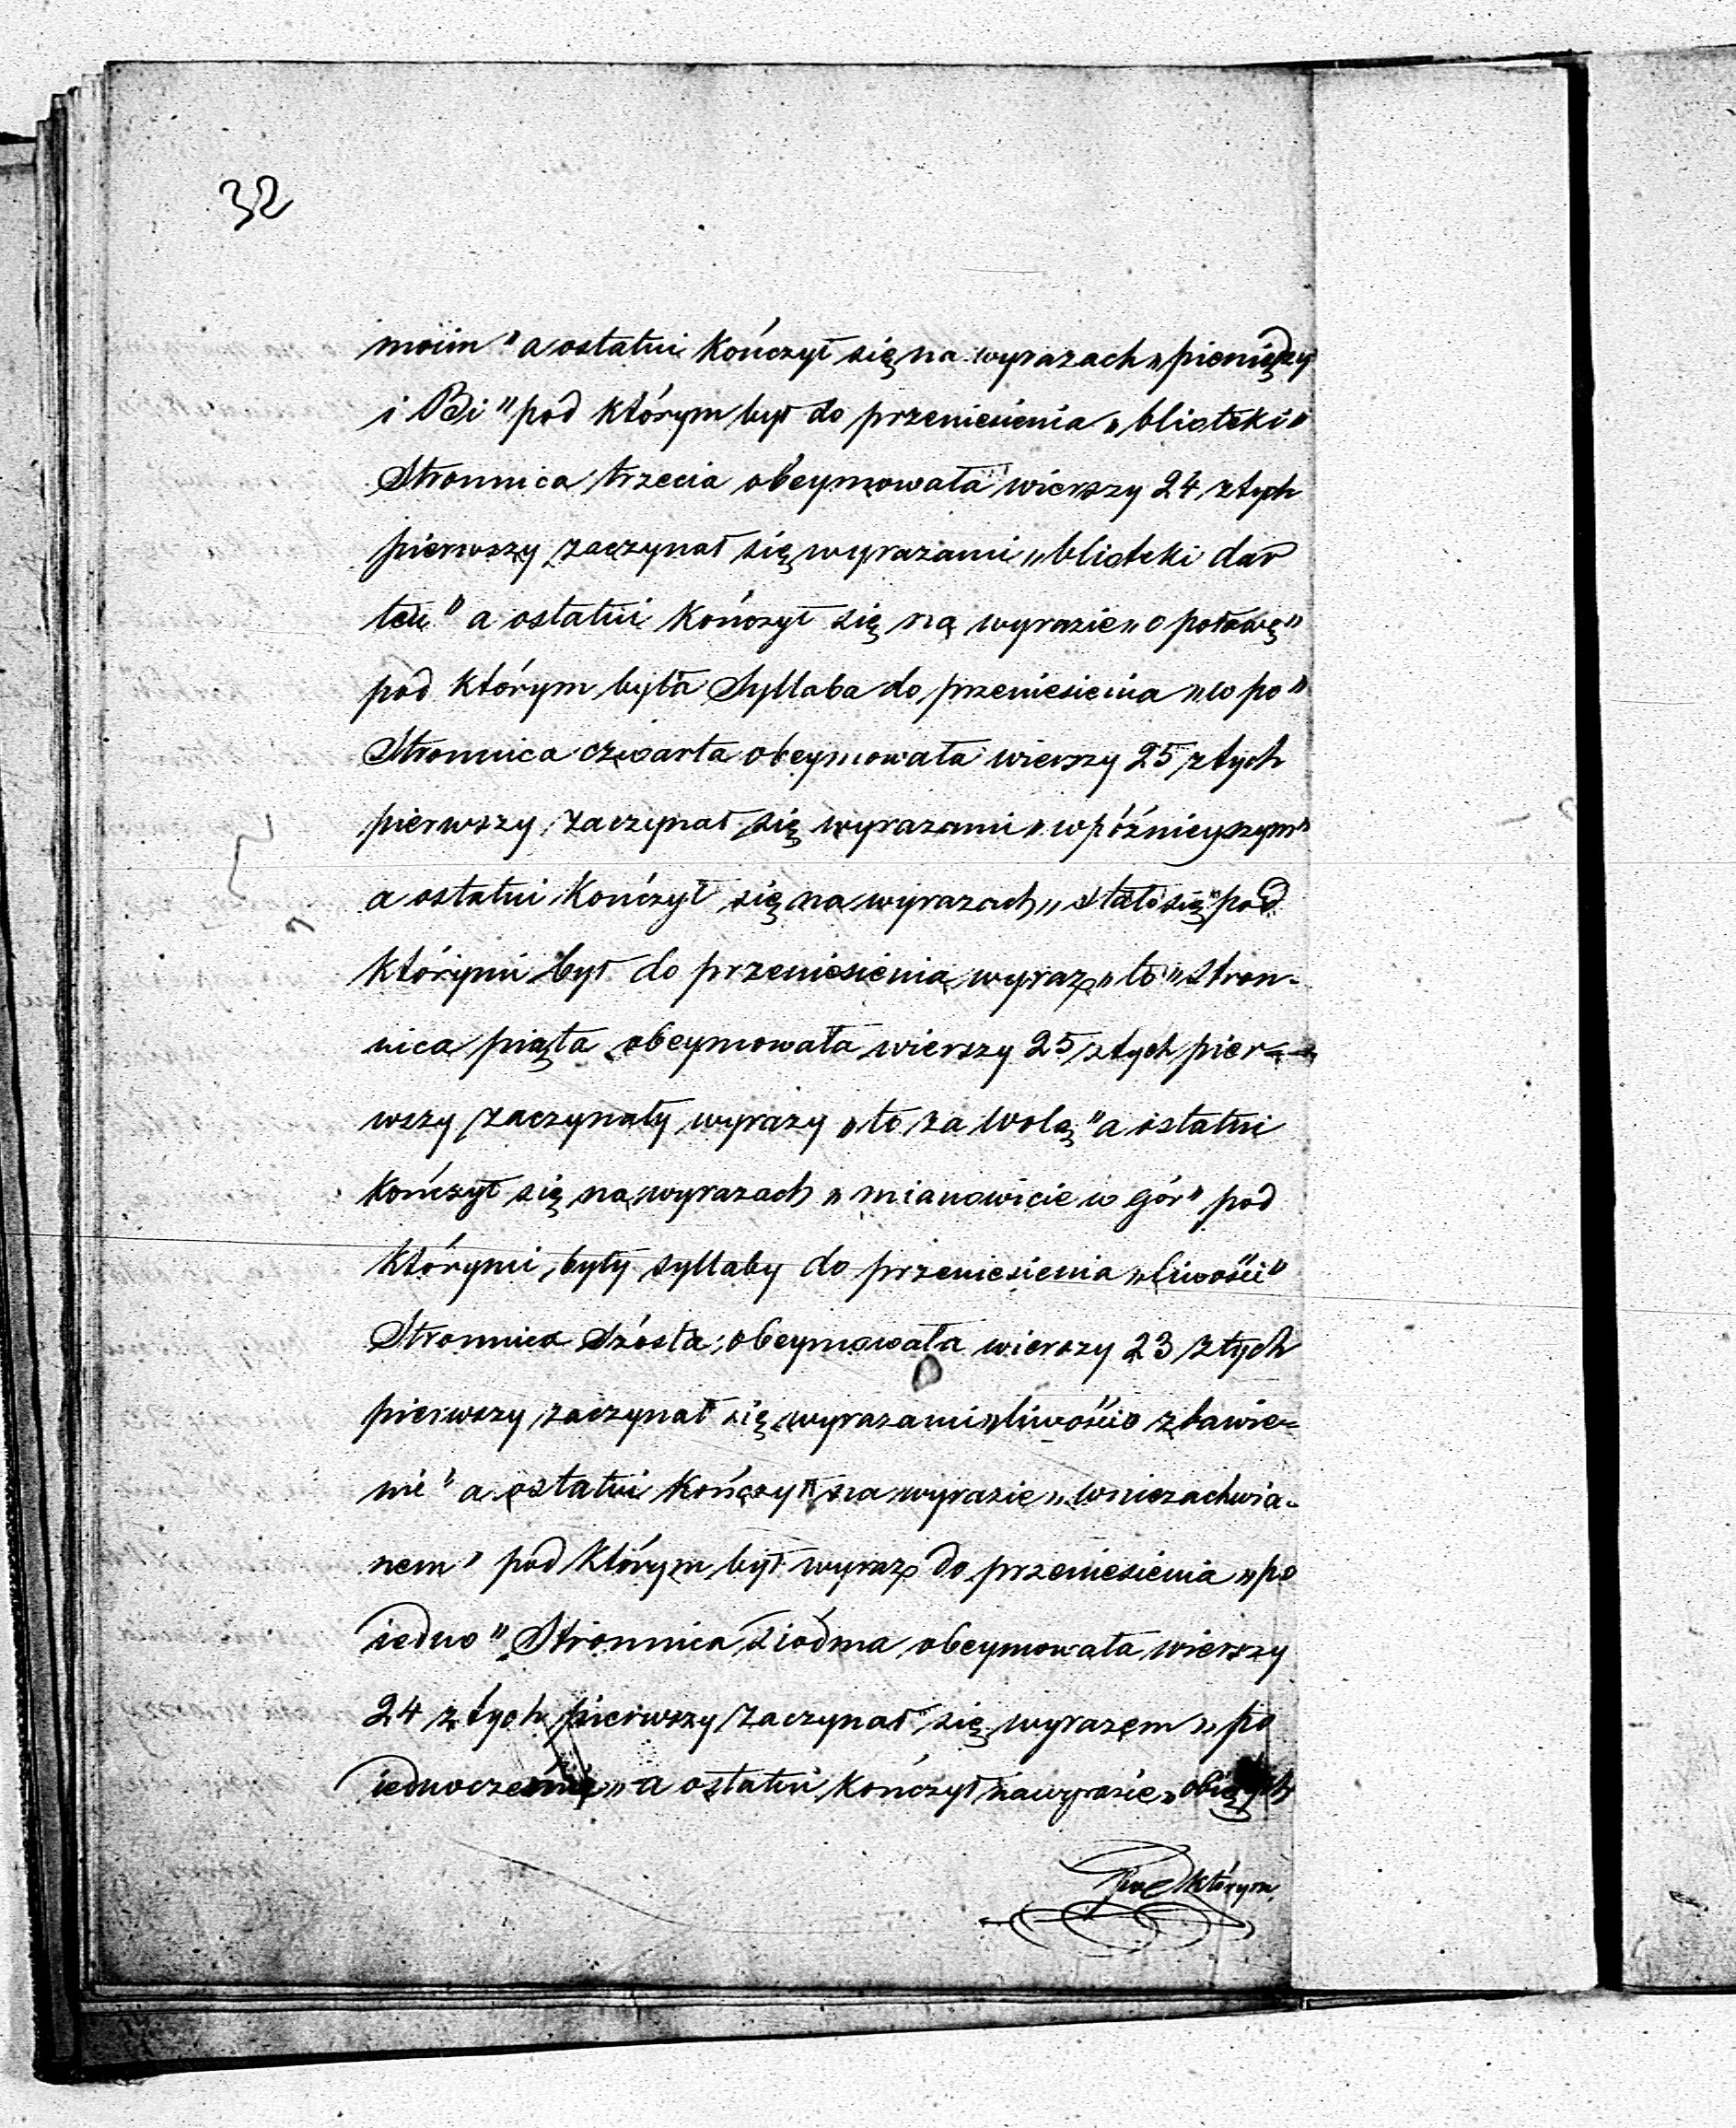 32
moim" a ostatni kończył się na wyrazach „pieniędzy
i Bi" pod którym był do przeniesienia „blioteki"
Stronnica trzecia obeymowała wierszy 24 z tych
pierwszy zaczynał się wyrazami „blioteki dar
ten" a ostatni kończył się na wyrazie „o połowę"
pod którym była Syllaba do przeniesienia „w po"
Stronnica czwarta obeymowała wierszy 25 z tych
pierwszy zaczynał się wyrazami „w późnieyszym"
a ostatni kończył się na wyrazach „stało się" pod
którymi był do przeniesienia wyraz „to" stron-
nica piąta obeymowała wierszy 25 z tych pier-
wszy zaczynały wyrazy „to za wolą" a ostatni
kończył się na wyrazach „mianowicie w gór" pod
którymi były syllaby do przeniesienia „liwości"
Stronnica szósta obeymowała wierszy 23 z tych
pierwszy zaczynał się wyrazami „liwości o zbawie-
nie" a ostatni kończył na wyrazie „w niezachwia-
nem" pod którym był wyraz do przeniesienia „po
iedno" Stronnica siódma obeymowała wierszy
24 z tych pierwszy zaczynał się wyrazem „po
iednoczenie" a ostatni kończył na wyrazie
Pod którym